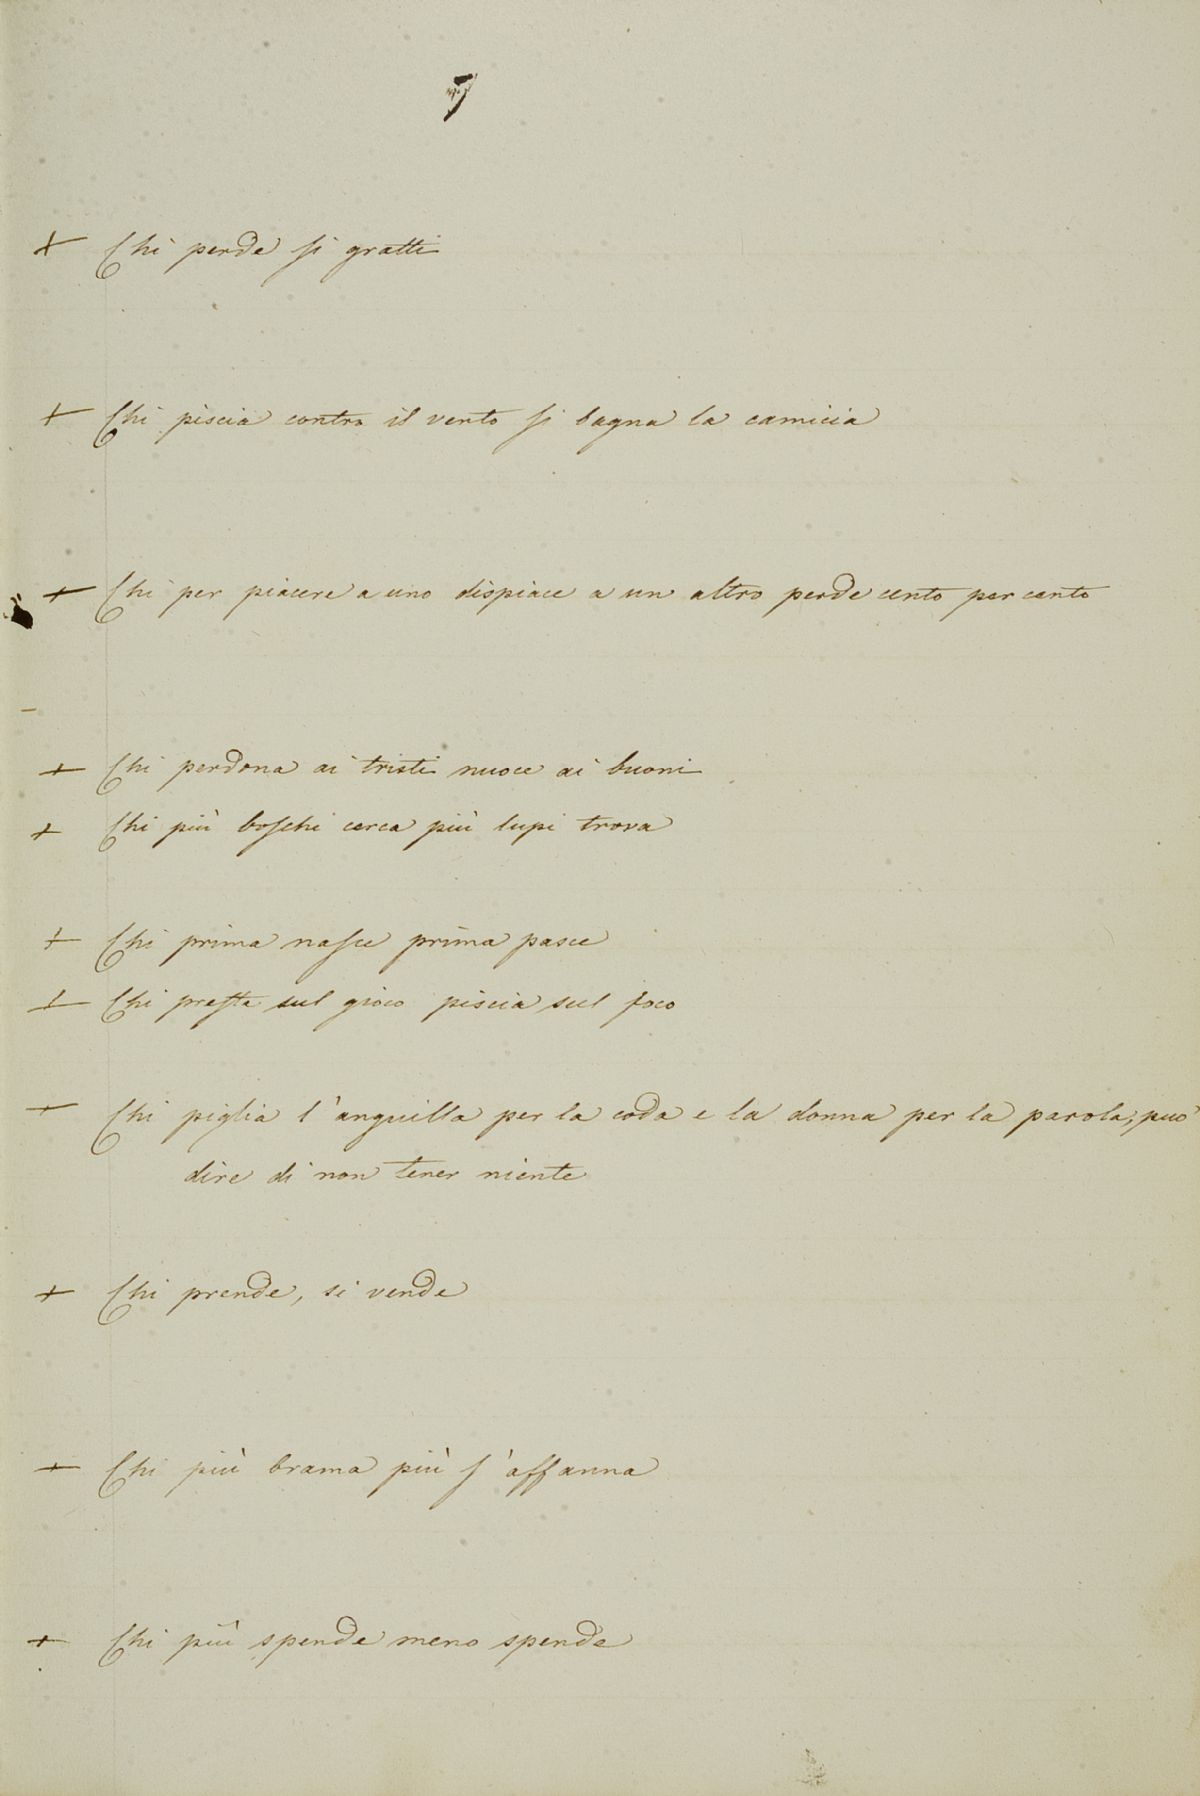 + Chi perde si gratti
+ Chi piscia contro il vento si bagna la camicia
+ Chi per piacere a uno dispiace a un altro perde cento per cento
+ Chi perdona ai tristi nuoce ai buoni
+ Chi più boschi cerca più lupi trova
+ Chi prima nasce prima pasce
+ Chi presta sul gioco piscia sul foco
+ Chi piglia l'anguilla per la coda e la donna per la parola, può
dire di non tener niente
+ Chi prende, si vende
+ Chi più brama più s'affanna
+ Chi più spende meno spende